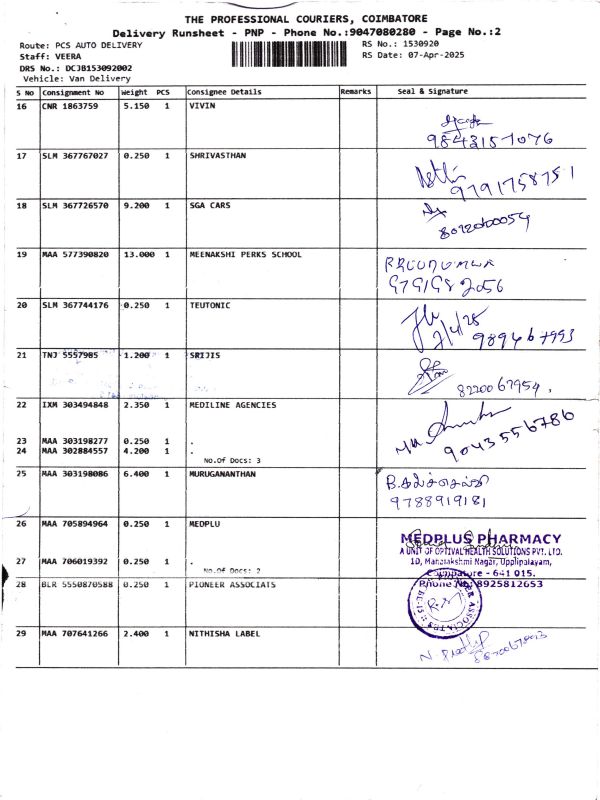 THE PROFESSIONAL COURIERS, COIMBATORE
Delivery Runsheet - PNP - Phone No.:9047080280 - Page No.:2
Route: PCS AUTO DELIVERY
RS No.: 1530920
Staff: VEERA
RS Date: 07-Apr-2025
DRS No.: DCJB153092002
Vehicle: Van Delivery
S No Consignment No Weight PCS Consignee Details Remarks Seal & Signature
16 CNR 1863759 5.150 1 VIVIN
9843157076
17 SLM 367767027 0.250 1 SHRIVASTHAN
9791758751
18 SLM 367726570 9.200 1 SGA CARS
8072000054
19 MAA 577390820 13.000 1 MEENAKSHI PERKS SCHOOL
20 SLM 367744176 0.250 1 TEUTONIC
7/4/25
9894667993
21 TNJ 5557985 1.200 1 SRIJIS
8220067954.
22 IXM 303494848 2.350 1 MEDILINE AGENCIES
9043556786
23 MAA 303198277 0.250 1 .
24 MAA 302884557 4.200 1 .
No.Of Docs: 3
25 MAA 303198086 6.400 1 MURUGANANTHAN
9788919181
26 MAA 705894964 0.250 1 MEDPLU
MEDPLUS PHARMACY
A UNIT OF OPTIVAL HEALTH SOLUTIONS PVT. LTD.
10, Mahalakshmi Nagar, Upplipalayam,
Coimbatore - 641 015.
Phone No: 8925812653
27 MAA 706019392 0.250 1 .
No.Of Docs: 2
28 BLR 5550870588 0.250 1 PIONEER ASSOCIATS
29 MAA 707641266 2.400 1 NITHISHA LABEL